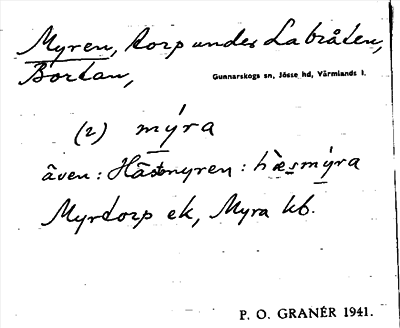 Myren, torp under Labråten,
Bortan,
Gunnarskogs sn, Jösse hd, Värmlands l.
(2) mýra
även: Hästmyren: hæ̀smýra
Myrtorp ek, Myra kb.
P. O. GRANÉR 1941.